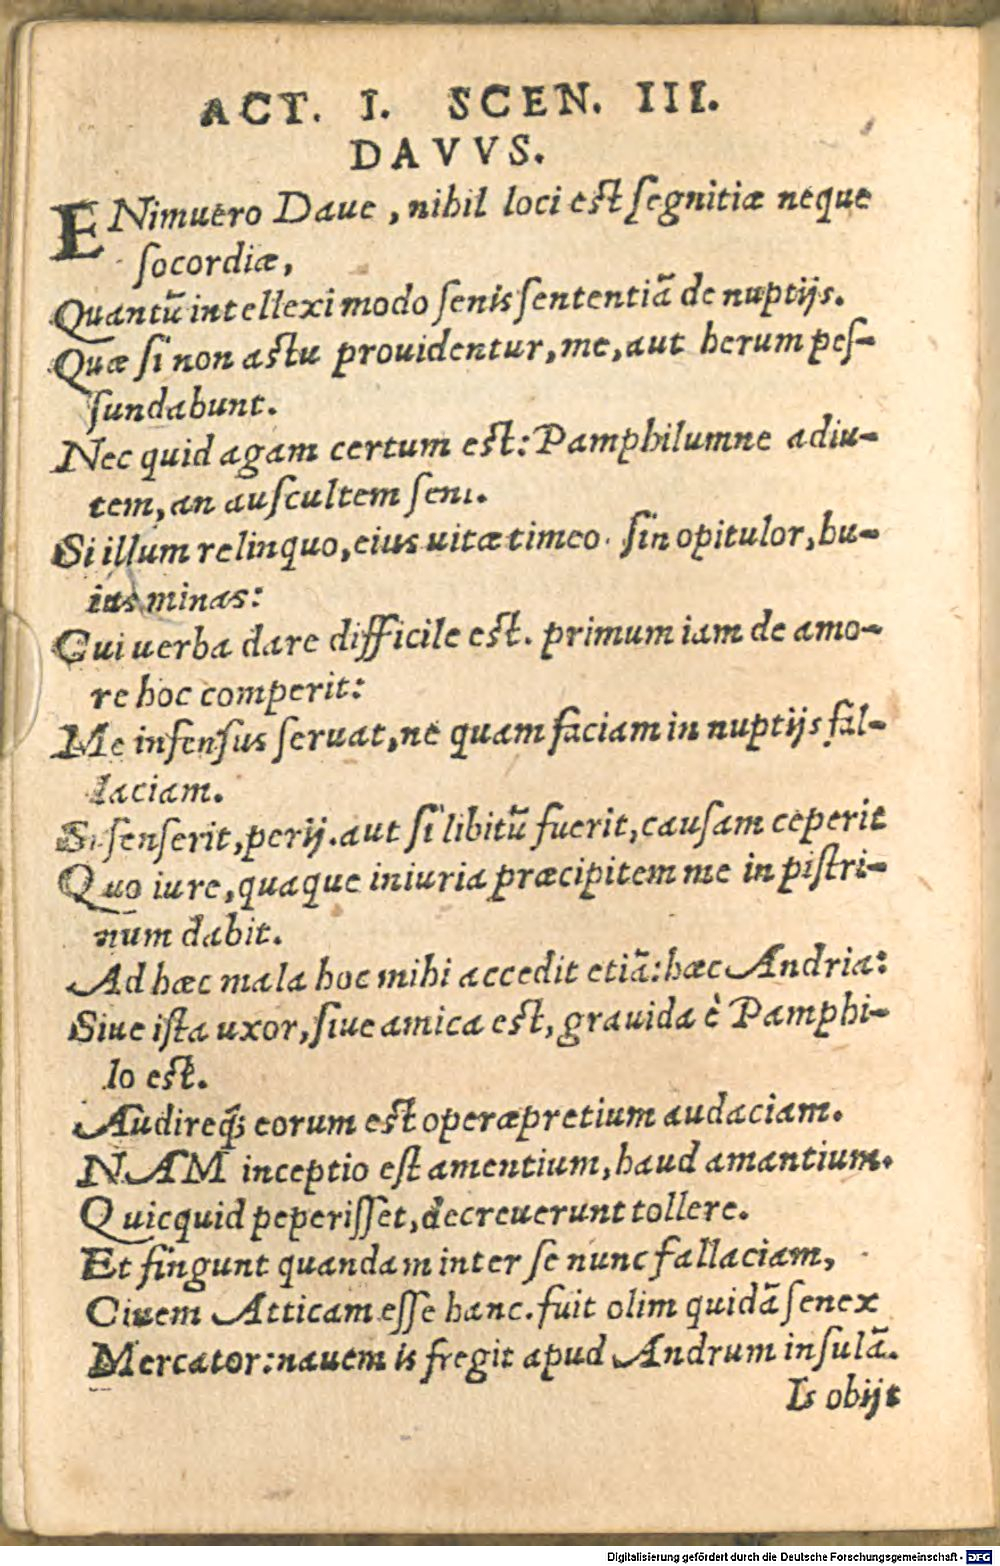 ACT. I. SCEN. III.
DAVVS.
ENimuero Daue, nihil loci est segnitiæ neque
socordiæ,
Quantũ intellexi modo senis sententiã de nuptijs.
Quæ si non astu prouidentur, me, aut herum pes-
sundabunt.
Nec quid agam certum est: Pamphilumne adiu-
tem, an auscultem seni.
Si illum relinquo, eius uitæ timeo. sin opitulor, hu-
ius minas:
Cui uerba dare difficile est. primum iam de amo-
re hoc comperit:
Me infensus seruat, ne quam faciam in nuptijs fal-
laciam.
Si senserit, perij. aut si libitũ fuerit, causam ceperit
Quo iure, quaque iniuria præcipitem me in pistri-
num dabit.
Ad hæc mala hoc mihi accedit etiã: hæc Andria:
Siue ista uxor, siue amica est, grauida è Pamphi-
lo est.
Audireq́; eorum est operæpretium audaciam.
NAM inceptio est amentium, haud amantium.
Quicquid peperisset, decreuerunt tollere.
Et fingunt quandam inter se nunc fallaciam,
Ciuem Atticam esse hanc. fuit olim quidã senex
Mercator: nauem is fregit apud Andrum insulã.
Is obijt
Digitalisierung gefördert durch die Deutsche Forschungsgemeinschaft - DFG